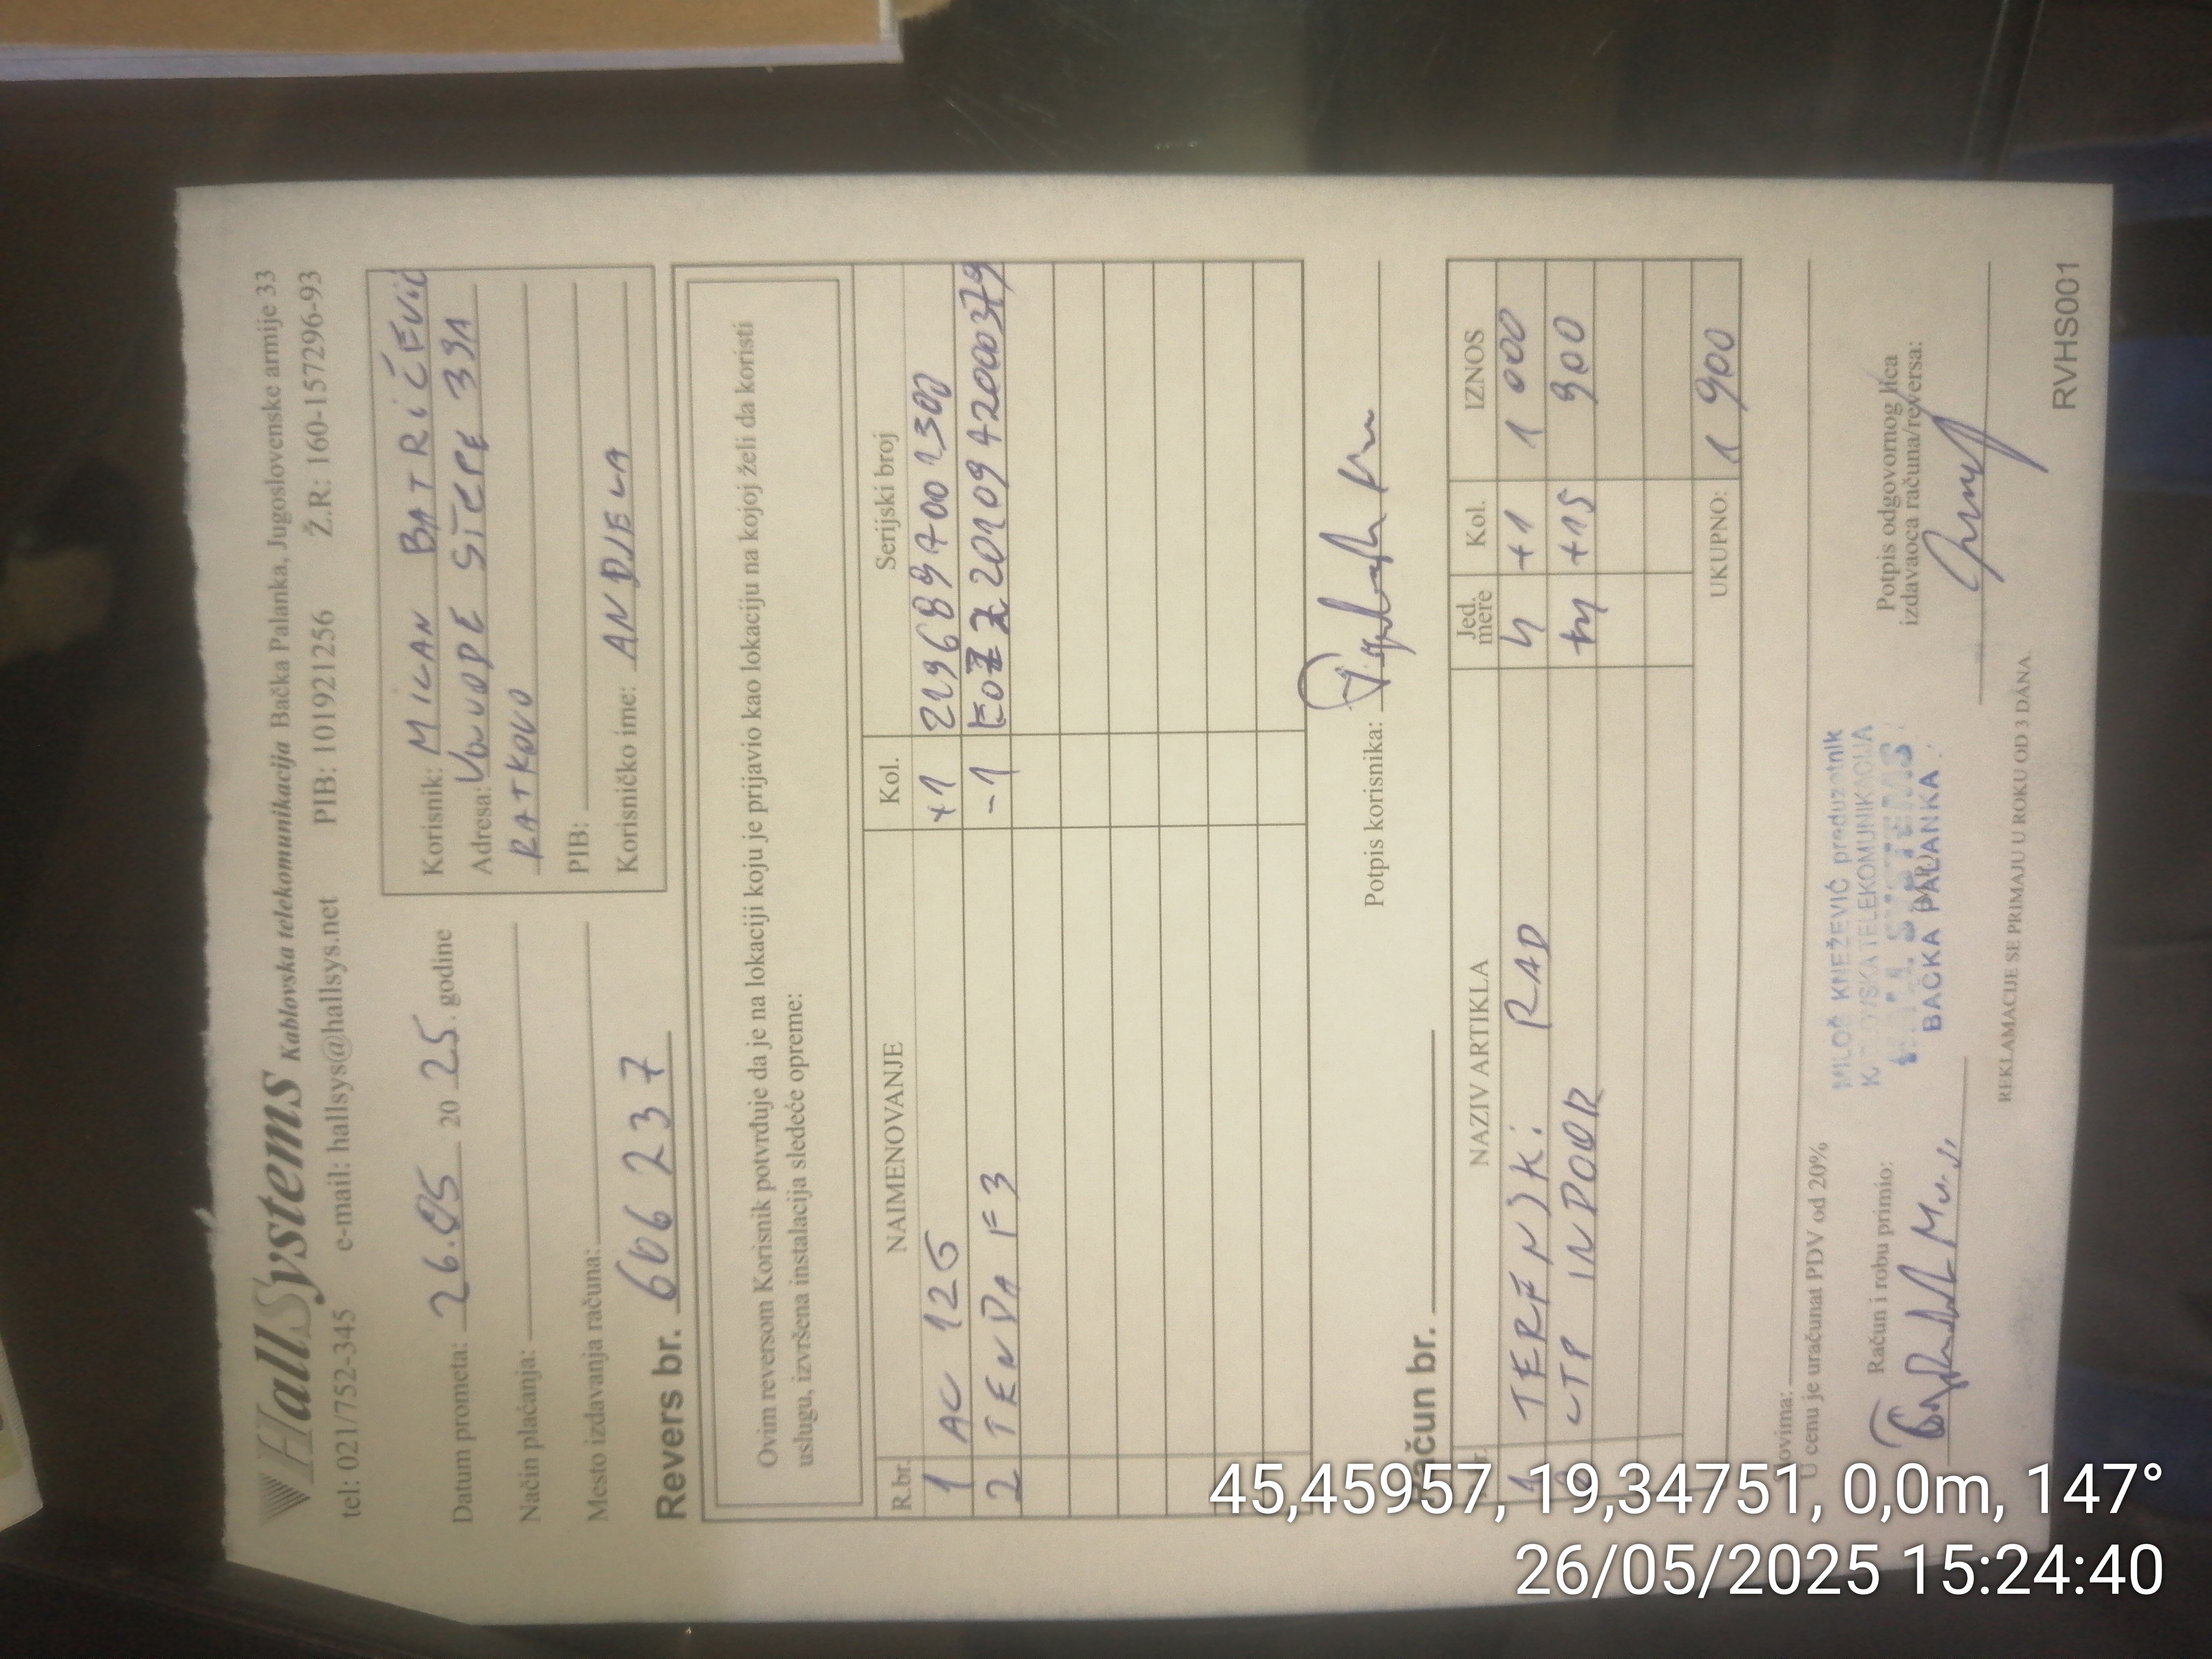 HallSystems Kablovska telekomunikacija Bačka Palanka, Jugoslovenske armije 33
tel: 021/752-345 e-mail: hallsys@hallsys.net PIB: 101921256 Ž.R: 160-157296-93
Datum prometa: 26.05 20 25. godine
Način plaćanja:
Mesto izdavanja računa:
Revers br. 606 237
Korisnik: MICAN BATRIĆEVIĆ
Adresa: VOJVODE STEPE 39A
RATKOVO
PIB:
Korisničko ime: ANDJELA
Ovim reversom Korisnik potvrđuje da je na lokaciji koju je prijavio kao lokaciju na kojoj želi da koristi
uslugu, izvršena instalacija sledeće opreme:
R.br. NAIMENOVANJE Kol. Serijski broj
1 AC 12G +1 2196897001300
2 TENDA F3 -1 2010942000379
Potpis korisnika:
Račun br.
NAZIV ARTIKLA Jed. mere Kol. IZNOS
1 TERENSKI RAD h +1 1 000
2 UTP INDOOR m +15 900
UKUPNO: 1 900
Slovima:
U cenu je uračunat PDV od 20%
Račun i robu primio:
MILOŠ KNEŽEVIĆ preduzetnik
KABLOVSKA TELEKOMUNIKACIJA
HALL SYSTEMS
BAČKA PALANKA
Potpis odgovornog lica
izdavaoca računa/reversa:
REKLAMACIJE SE PRIMAJU U ROKU OD 3 DANA.
RVHS001
45,45957, 19,34751, 0,0m, 147°
26/05/2025 15:24:40